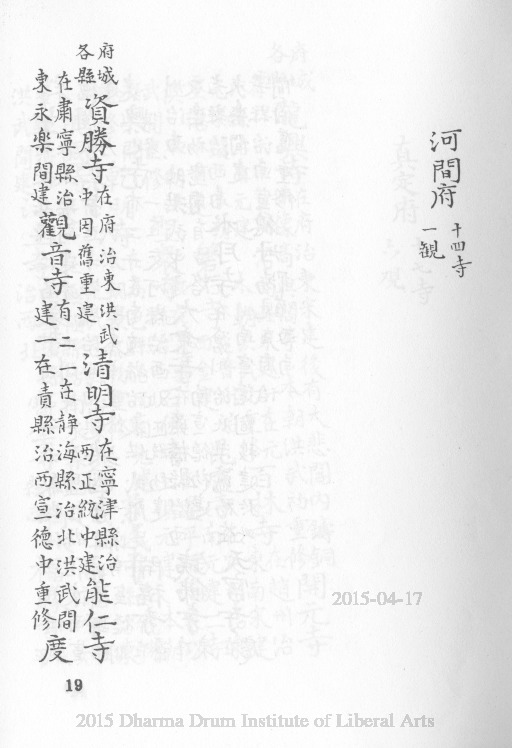 河間府
十四寺
一観
府城
各縣
資勝寺
在府治東洪武
中因舊重建
清明寺
在寧津縣治
西正統中建
能仁寺
在肅寧縣治
東永樂間建
觀音寺
有二一在靜海縣治北洪武間
建一在責縣治西宣德中重修
度
19
2015-04-17
2015 Dharma Drum Institute of Liberal Arts